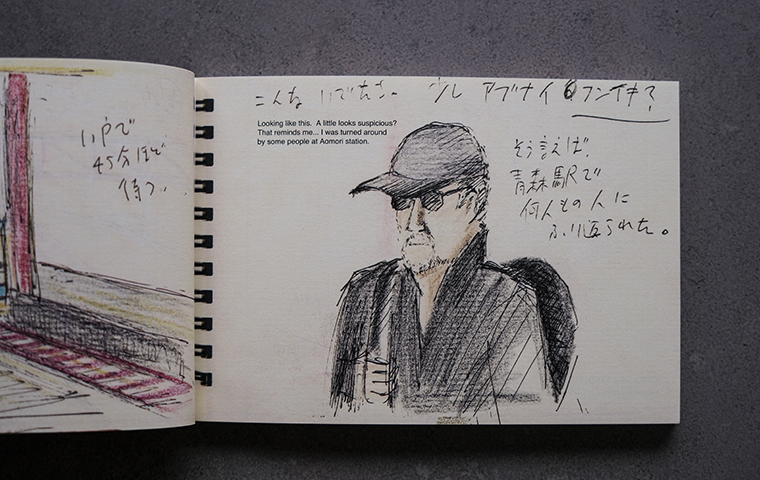 八戸で
45分ほど
待つ。
こんな いでたち。 少し アブナイ フンイキ?
Looking like this. A little looks suspicious?
That reminds me... I was turned around
by some people at Aomori station.
そう言えば、
青森駅で
何人もの人に
ふり返られた。